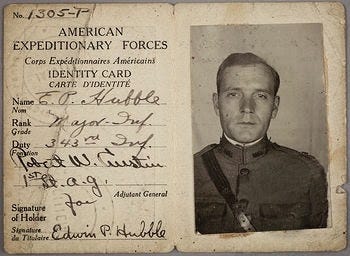 No. 1305-P
AMERICAN
EXPEDITIONARY FORCES
Corps Expéditionnaires Américains
IDENTITY CARD
CARTE D'IDENTITÉ
Name E. P. Hubble
Nom
Rank Major-Inf.
Grade
Duty 343rd Inf.
Fonction
Robert W. Austin
1st Lt. a.g.
Adjutant General
for
Signature
of Holder
Signature
du Titulaire Edwin P. Hubble